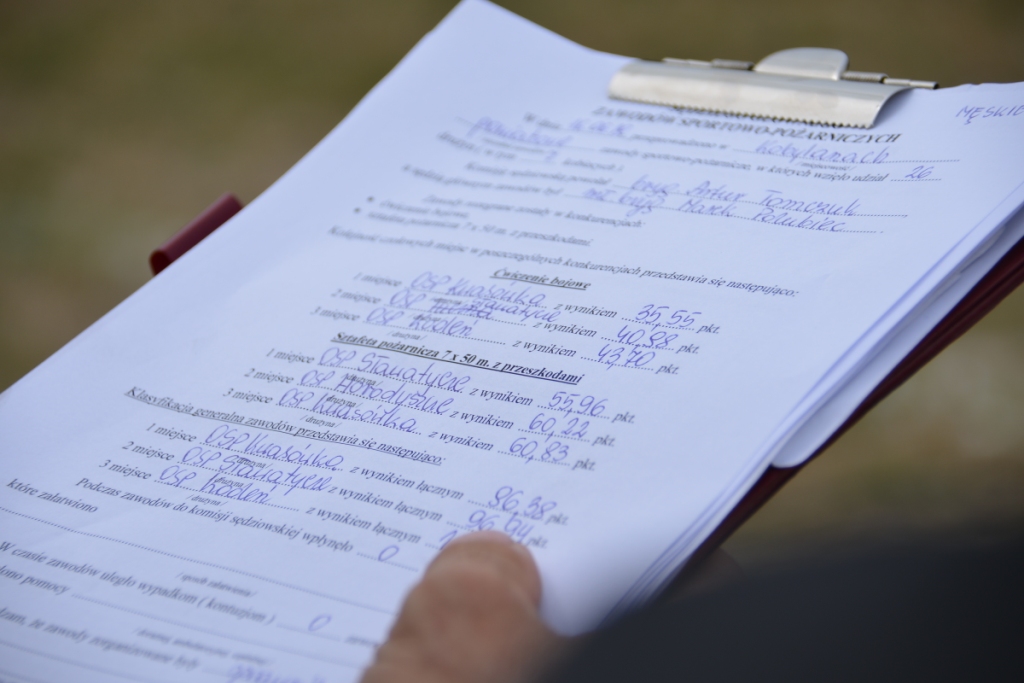 MĘSKIE
ZAWODÓW SPORTOWO-POŻARNICZYCH
W dniu przeprowadzono w Kobylanach
powiatowe zawody sportowo-pożarnicze, w których wzięło udział 26
kobiecych
Komisją sędziowską powołał bryg. Artur Tomczuk
Sędzią głównym zawodów był mł. bryg. Marek Połubiec
Zawody rozegrane zostały w konkurencjach:
Ćwiczenie bojowe
Sztafeta pożarnicza 7 x 50 m. z przeszkodami
Kolejność czołowych miejsc w poszczególnych konkurencjach przedstawia się następująco:
Ćwiczenie bojowe
1 miejsce OSP Kwasówka z wynikiem 35,55 pkt.
2 miejsce OSP Sławatycze z wynikiem 40,98 pkt.
3 miejsce OSP Kodeń z wynikiem 43,70 pkt.
/drużyna/
Sztafeta pożarnicza 7 x 50 m. z przeszkodami
1 miejsce OSP Sławatycze z wynikiem 55,96 pkt.
2 miejsce OSP Horodyszcze z wynikiem 60,22 pkt.
3 miejsce OSP Kwasówka z wynikiem 60,83 pkt.
/drużyna/
Klasyfikacja generalna zawodów przedstawia się następująco:
1 miejsce OSP Kwasówka z wynikiem łącznym 96,38 pkt.
2 miejsce OSP Sławatycze z wynikiem łącznym 96,94 pkt.
3 miejsce OSP Kodeń z wynikiem łącznym
/drużyna/
Podczas zawodów do komisji sędziowskiej wpłynęło 0
które załatwiono
/sposób załatwienia/
W czasie zawodów uległo wypadkom ( kontuzjom ) 0
pomocy
że zawody zorganizowane były